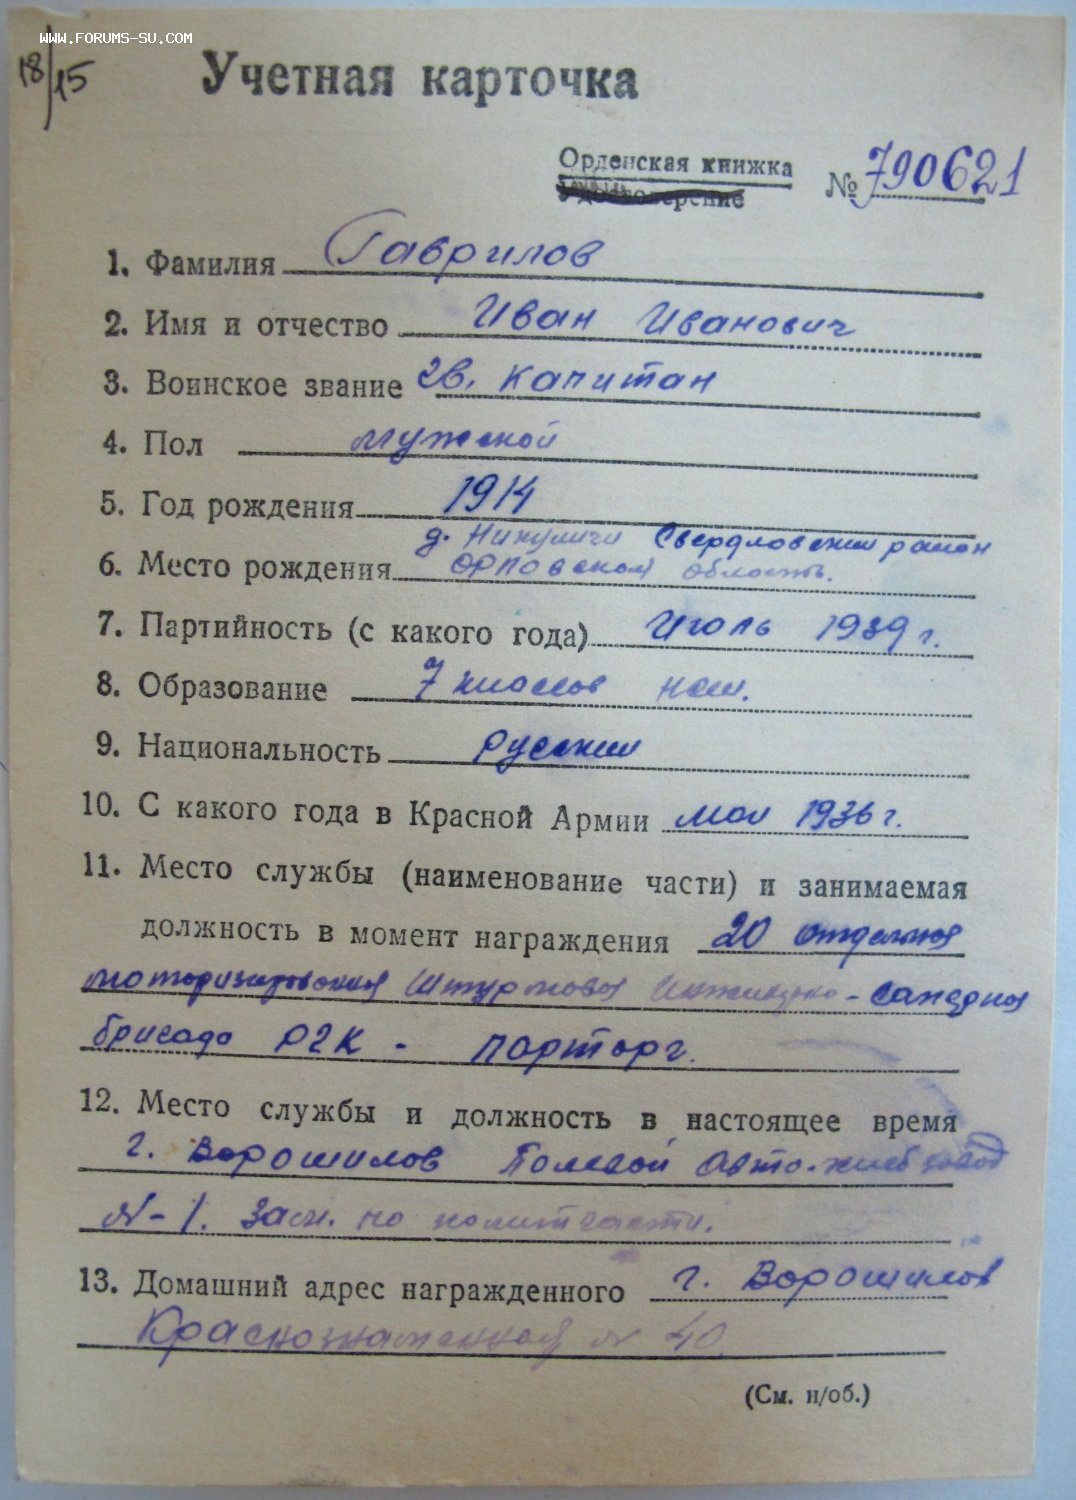 WWW.FORUMS-SU.COM
18/15
Учетная карточка
Орденская книжка
Удостоверение
№ 790621
1. Фамилия Гаврилов
2. Имя и отчество Иван Иванович
3. Воинское звание гв. капитан
4. Пол мужской
5. Год рождения 1914
д. Никуличи Свердловский район
6. Место рождения Орловской область.
7. Партийность (с какого года) Июль 1939 г.
8. Образование 7 классов
9. Национальность русский
10. С какого года в Красной Армии мая 1936 г.
11. Место службы (наименование части) и занимаемая
должность в момент награждения 20 отдельная
моторизированная Штурмовая Инженерно-сапёрная
бригада РГК - парторг.
12. Место службы и должность в настоящее время
г. Ворошилов Полевой Авто-хлеб завод
N-1. Зам. по политчасти.
13. Домашний адрес награжденного г. Ворошилов
Краснознаменная N 40.
(См. н/об.)